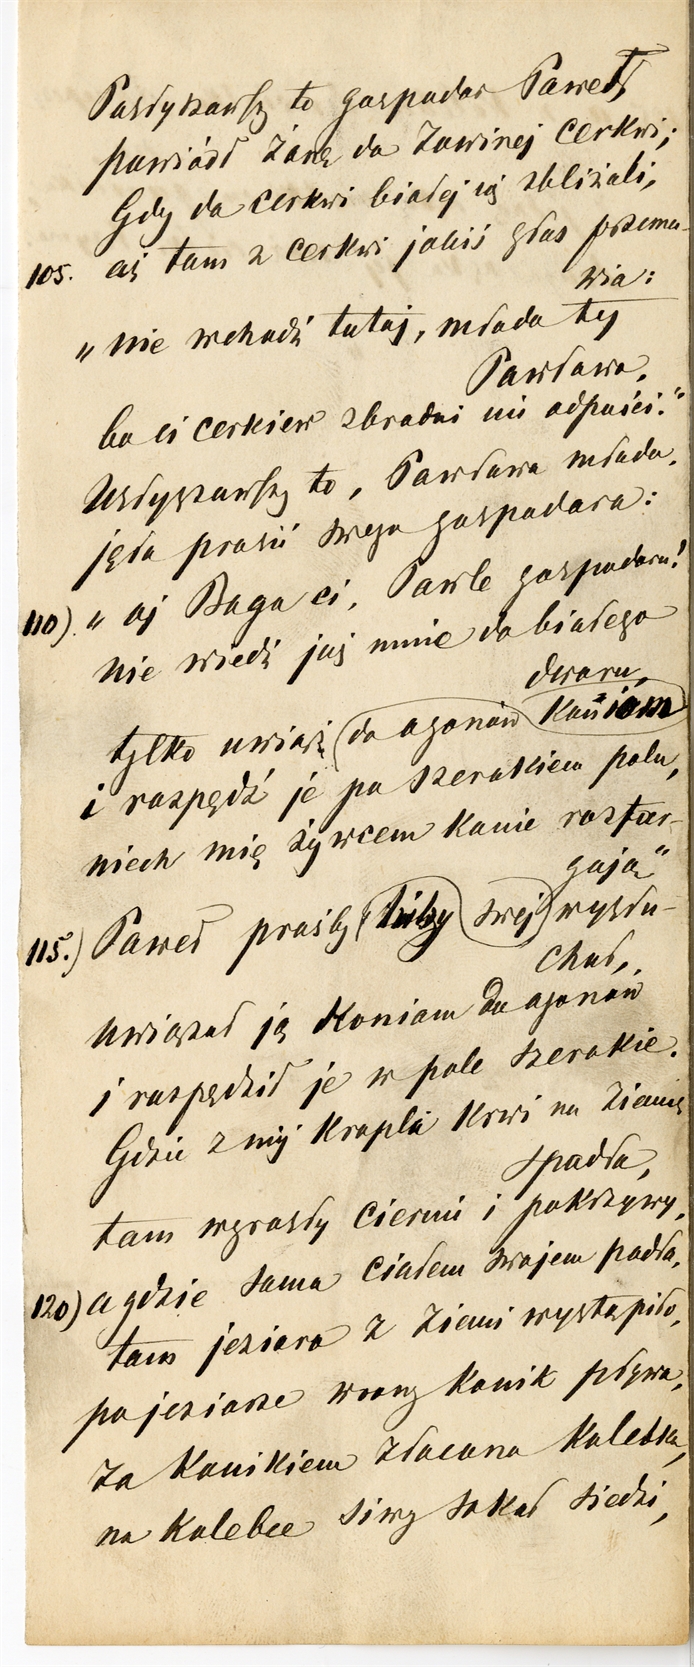 Posłyszawszy to gospodar Paweł,
powiódł żonę do Żowinej cerkwi;
Gdy do cerkwi białej się zbliżali,
105. aż tam z cerkwi jakiś głos przema-
wia:
„nie wchodź tutaj, młoda ty
Pawłowa,
bo ci cerkiew zbrodni nie odpuści."
Usłyszawszy to, Pawłowa młoda,
jęła prosić swego gospodara:
110) „aj Boga ci, Pawle gospodaru!
nie wiedź już mnie do białego
dworu,
tylko uwiąż do ogonów koniom
i rozpędź je po szerokiem polu,
niech mię żywcem konie roztar-
gają"
115.) Paweł prośby luby swej wysłu-
chał,
uwiązał ją koniom do ogonów
i rozpędził je w pole szerokie.
Gdzie z niej kropla krwi na ziemię
spadła,
tam wyrosły ciernie i pokrzywy,
120) a gdzie sama ciałem swojem padła,
tam jezioro z ziemi wystąpiło,
po jeziorze wrony konik pływa,
za konikiem złocona kolebka,
na kolebce siwy sokół siedzi,